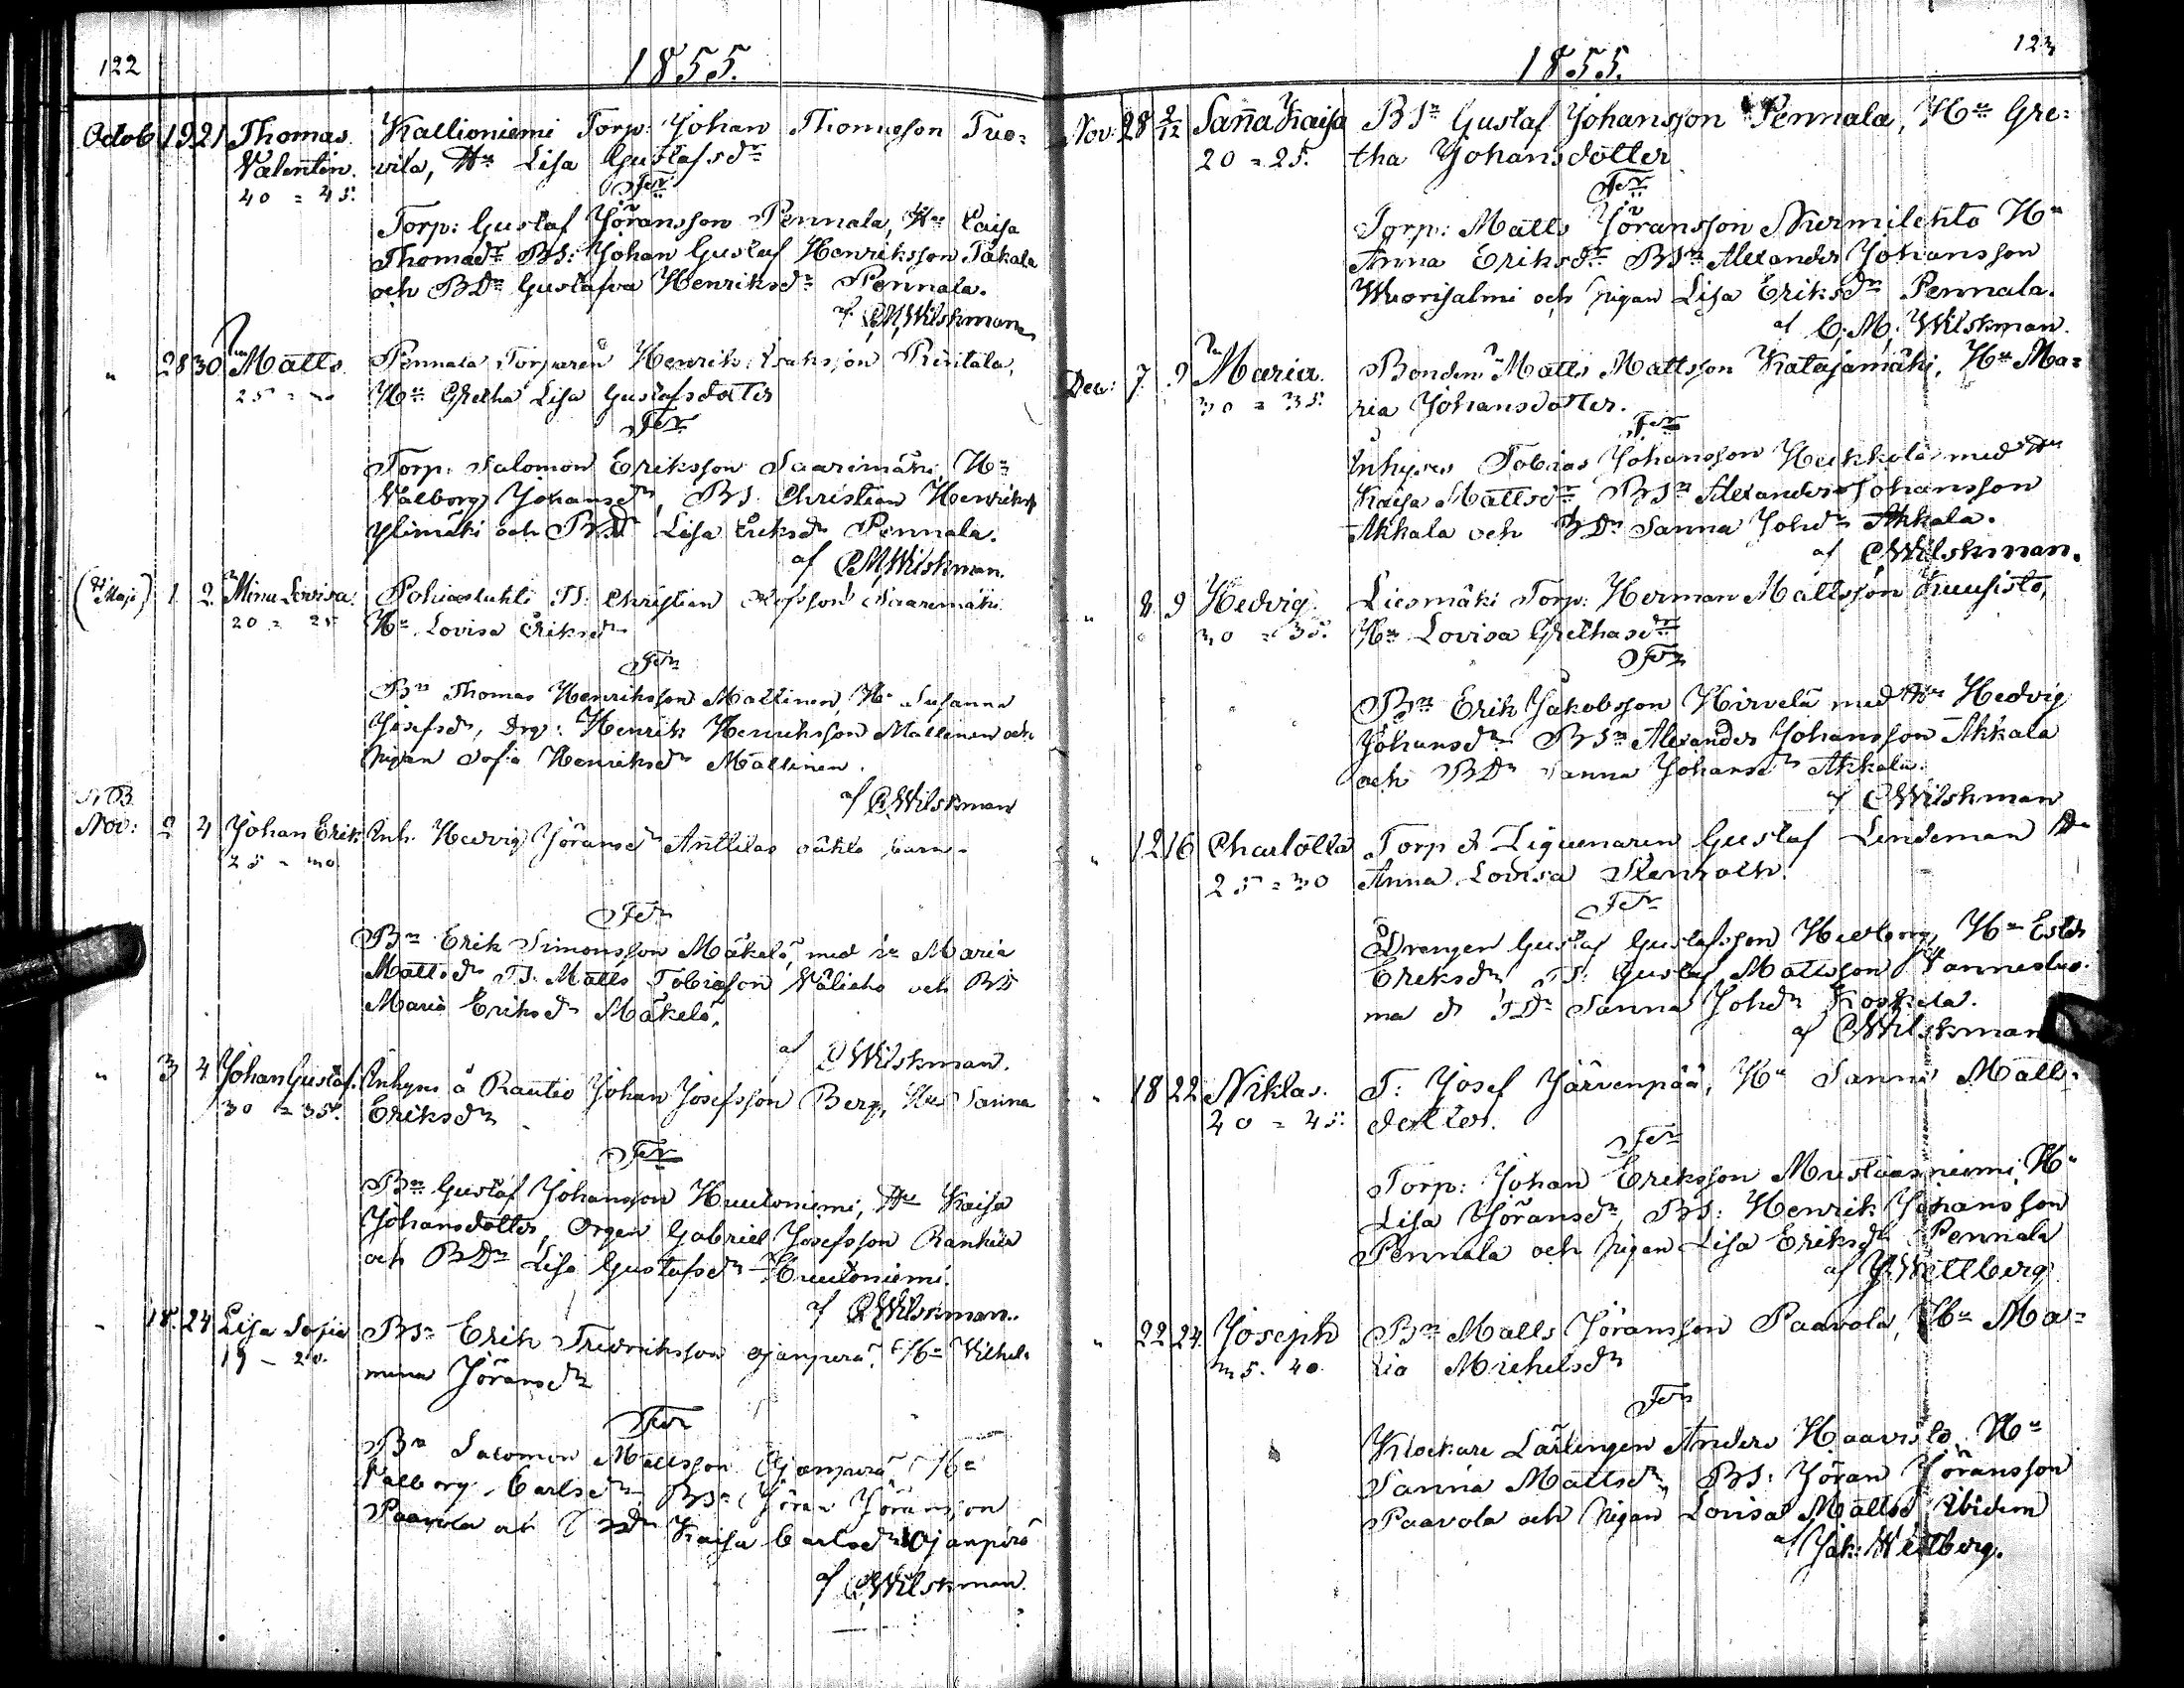 122
1855.
Octob 19 21 Thomas Kallioniemi Torp: Johan Thomasson Tuo=
Valentin. vila, Hu Lisa Gustafsdr
40 = 45.
Fr
Torp: Gustaf Jöransson Pennala, Hu Caisa
Thomasdr BS: Johan Gustaf Henriksson Takala
och BDr Gustafva Henriksdr Pennala.
af CM Wilskman
" 28 30 Matts. Pennala Torparen Henrik Isaksson Rintala,
25 = 30 Hu Gretha Lisa Gustafsdotter
Fr
Torp: Salomon Eriksson Saarimäki, Hu
Valborg Johansdr, BS. Christian Henriks
Ylimäki och BD Lisa Eriksdr Pennala.
af CM Wilskman.
(Maji) 1 2 Mina Lovisa. TS. Christian Olofsson Saarimäki
20 = 25 Hu Lovisa Eriksdr
Fr
Bn Thomas Henriksson Mattinen, Hu Susanna
Josefsdr, Drg: Henrik Henriksson Mattinen och
pigan Sofia Henriksdr Mattinen.
af C Wilskman
NB
Nov: 2 4 Johan Erik Inh. Hedvig Jöransdr Anttilas oäkta barn.
25 = 30
Fr
Bn Erik Simonsson Mäkelä, med Hu Maria
Mattsdr TS. Matts Tobiasson Väliaho och BD
Maria Eriksdr Mäkelä.
af C Wilskman.
" 3 4 Johan Gustaf. Inhyses å Rautio Johan Josefsson Berg, Hu Sanna
30 = 35. Eriksdr
Fr
Bn Gustaf Johansson Huuloniemi, Hu Kaisa
Johansdotter, Drgen Gabriel Josefsson
och BDr Lisa Gustafsdr Huuloniemi.
af C Wilskman.
" 18. 24 Lisa Sofia BSn Erik Fredriksson Ojanperä, Hu Vilhel=
19 - 20. mina Jöransdr
Fr
Bn Salomon Mattsson Ojanperä, Hu
Valborg Carlsdr, BSn Jöran Jöransson
Paavola och Kaisa Carlsdr Ojanperä
af C Wilskman.
123
1855.
Nov: 28 2/12 Sanna Kaisa BSn Gustaf Johansson Pennala, Hu Gre=
20 = 25. tha Johansdotter
Fr
Torp: Matts Jöransson Nurmilehto Hu
Anna Eriksdr BSn Alexander Johansson
Wuorisalmi och pigan Lisa Eriksdr Pennala.
af C. M. Wilskman.
Dec: 7. 9 Maria. Bonden Matts Mattsson Katajamäki, Hu Ma=
30 = 35. ria Johansdotter.
Fr
Inhyses Tobias Johansson Heikkilä med Hu
Kaisa Mattsdr BSn Alexander Johansson
Akkala och BDr Sanna Johdr Akkala.
af C Wilskman.
" 8 9 Hedvig. Liesmäki Torp: Herman Mattsson Kuusisto,
30 = 35. Hu Lovisa Grethasdr
Fr
Bn Erik Jakobsson Hirvelä med Hu Hedvig
Johansdr BSn Alexander Johansson Akkala
och BDr Sanna Johansdr Akkala.
af C Wilskman
" 12 16 Charlotta Torp Gustaf Lindeman
25 = 30 Anna Lovisa Stenroth.
Fr
Drengen Gustaf Gustafsson Hedborg, Hu Ester
Eriksdr, TS: Gustaf Mattsson
TDr Sanna Johdr Koskela.
af C Wilskman
" 18 22 Niklas. T: Josef Järvenpää, Hu Sanna Matts=
40 = 45. dotter.
Fr
Torp: Johan Eriksson Mustaasniemi, Hu
Lisa Jöransdr, BS: Henrik Johansson
Pennala och pigan Lisa Eriksdr Pennala
af J Wettberg
" 22 24. Joseph Bn Matts Jöransson Paavola, Hu Ma=
35. 40. ria Michelsdr
Fr
Klockare Lärlingen Anders Haavisto, Hu
Sanna Mattsdr, BS: Jöran Jöransson
Paavola och pigan Lovisa Mattsdr Ibidem
af Jak: Wettberg.